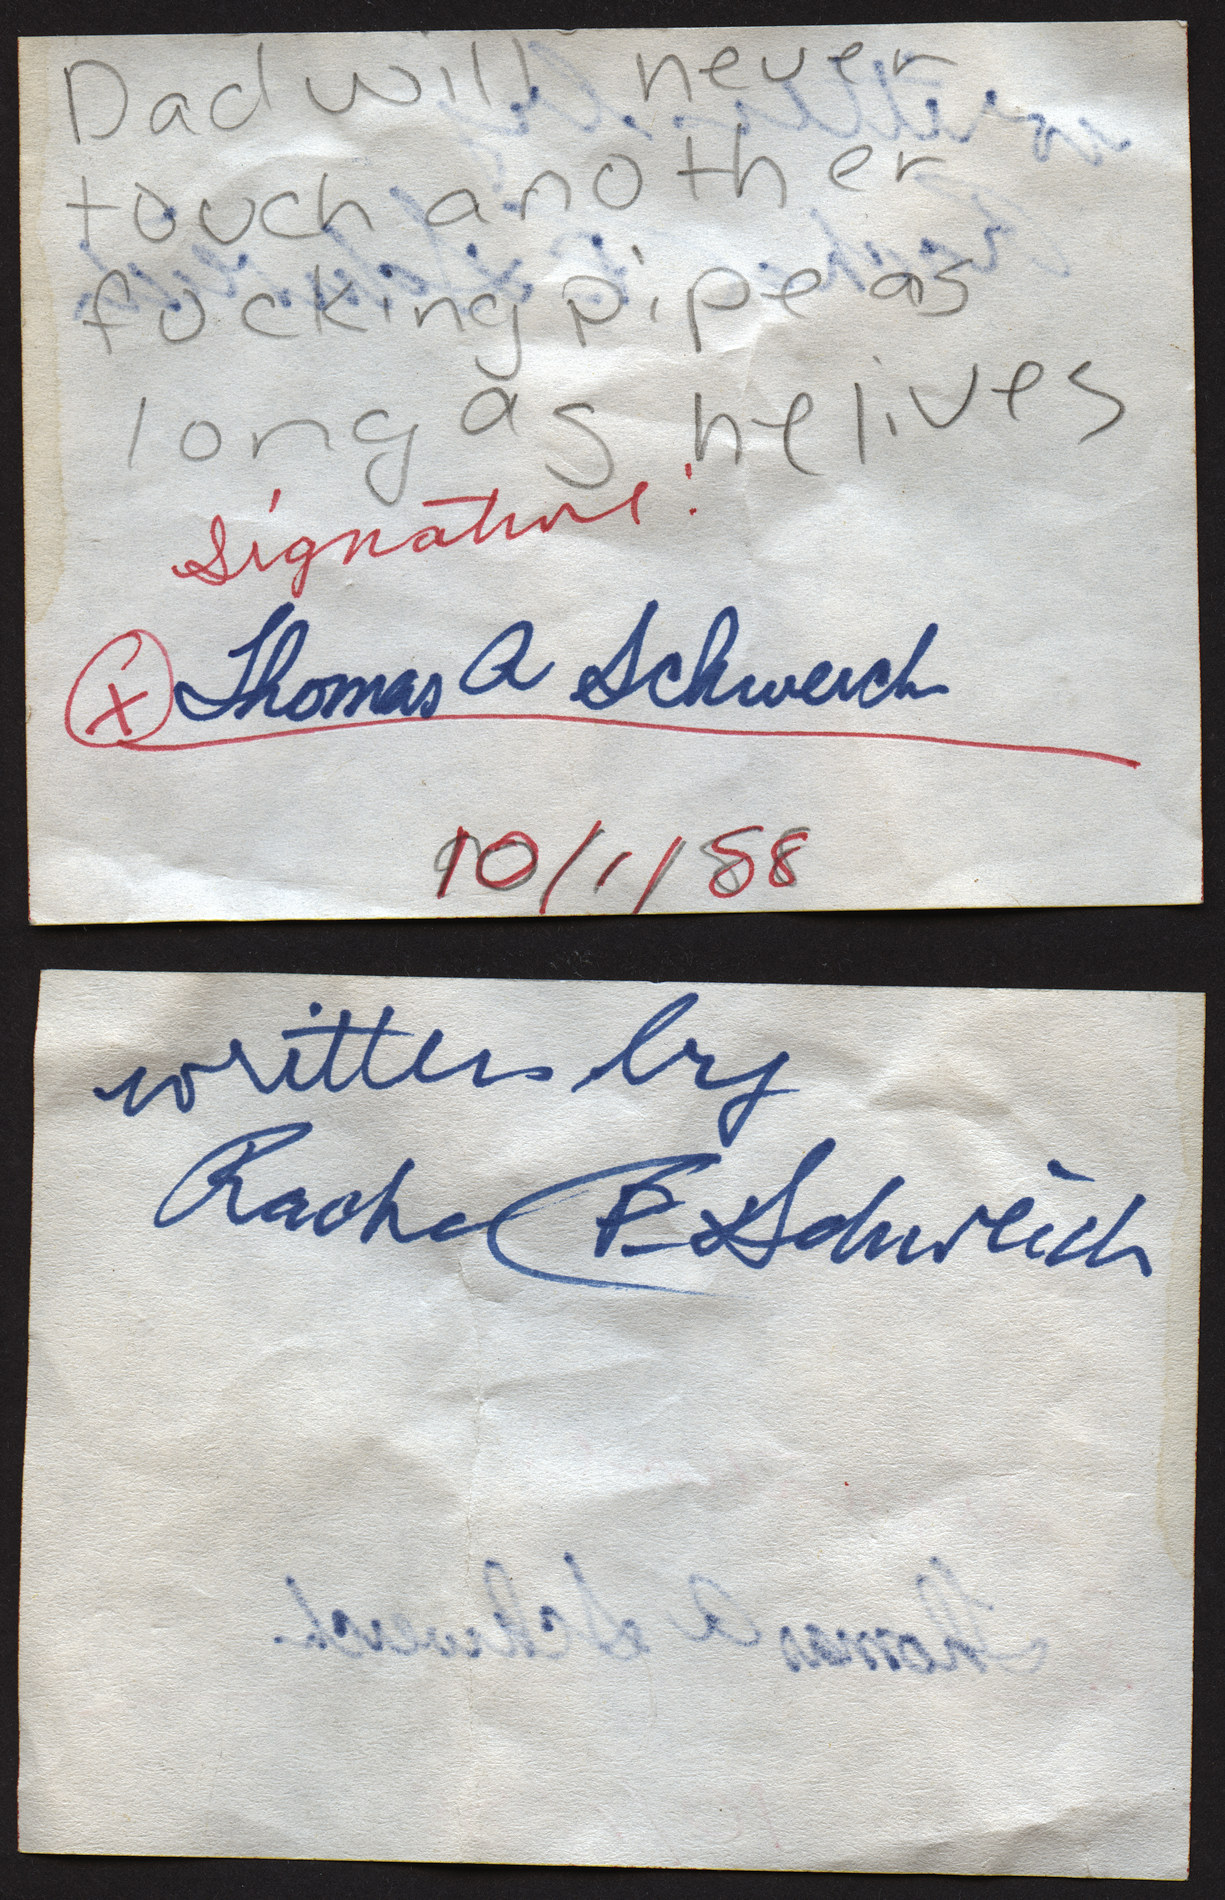 Dad will never
touch another
fucking pipe as
long as he lives
Signature:
X Thomas A Schweich
10/1/88
written by
Rachel P. Schweich